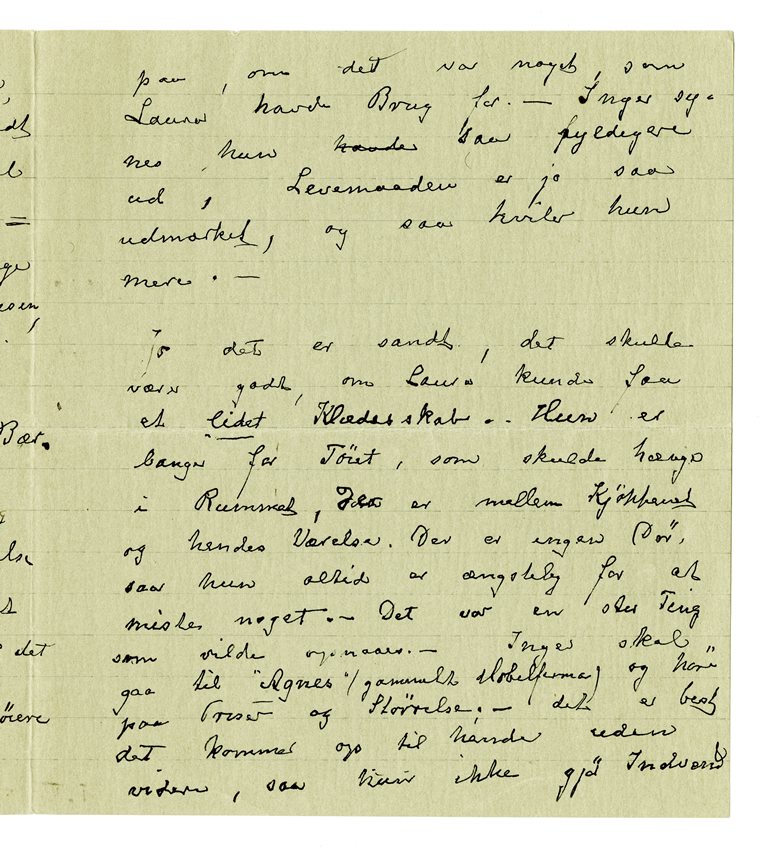 paa, om det var noget, som
Laura havde Brug for. — Inger sy-
nes hun havde saa fyldigere
ud, Levemaaden er jo saa
udmærket, og saa hviler hun
mere. —
Jo det er sandt, det skulde
være godt, om Laura kunde faa
et lidet Klædesskab. Hun er
bange for Töiet, som skulde hænge
i Rummet, er mellem Kjökkenet
og hendes Værelse. Der er ingen Dör,
saa hun altid er ængstelig for at
miste noget. — Det var en stor Ting
som vilde opnaaes. — Inger skal
gaa til "Agnes" (gammelt Möbelfirma) og höre
paa Priser og Störrelse. — det er best
det kommer op til hende uden
videre, saa hun ikke gjö Indvend
Bær-
det